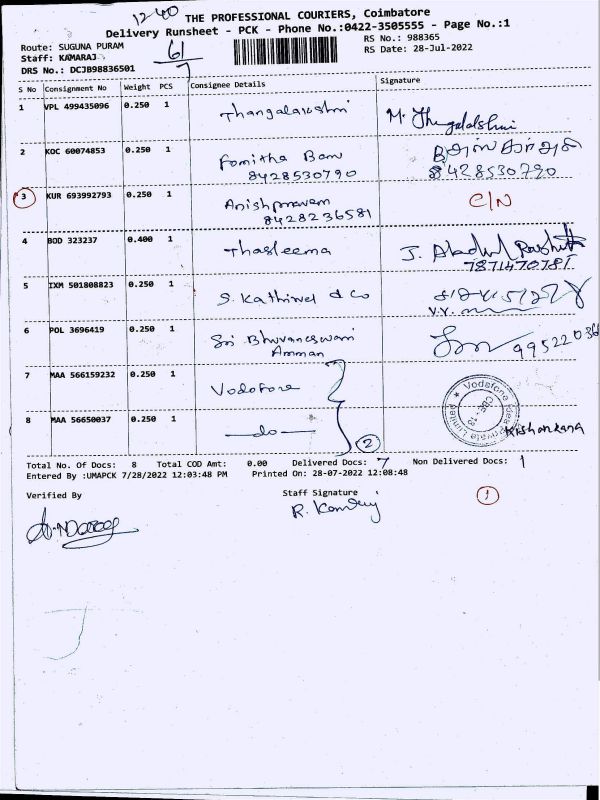 12-40
THE PROFESSIONAL COURIERS, Coimbatore
Delivery Runsheet - PCK - Phone No.:0422-3505555 - Page No.:1
Route: SUGUNA PURAM 61 RS No.: 988365
Staff: KAMARAJ RS Date: 28-Jul-2022
DRS No.: DCJB98836501 7
S No Consignment No Weight PCS Consignee Details Signature
1 VPL 499435096 0.250 1 Thangalakshmi
2 KOC 60074853 0.250 1 Fomitha Banu
8428530790 8428530790
3 KUR 693992793 0.250 1 Anishpraveen C/N
8428236581
4 BOD 323237 0.400 1 Thasleema J. Abdul Rashith
7871470781
5 IXM 501808823 0.250 1 S. Kathirvel & Co
V.V.
6 POL 3696419 0.250 1 Sri Bhuvaneswari
Amman 995220036
7 MAA 566159232 0.250 1 Vodafone
8 MAA 56650037 0.250 1 -do- 2
Total No. Of Docs: 8 Total COD Amt: 0.00 Delivered Docs: 7 Non Delivered Docs: 1
Entered By :UMAPCK 7/28/2022 12:03:48 PM Printed On: 28-07-2022 12:08:48
Verified By Staff Signature 1